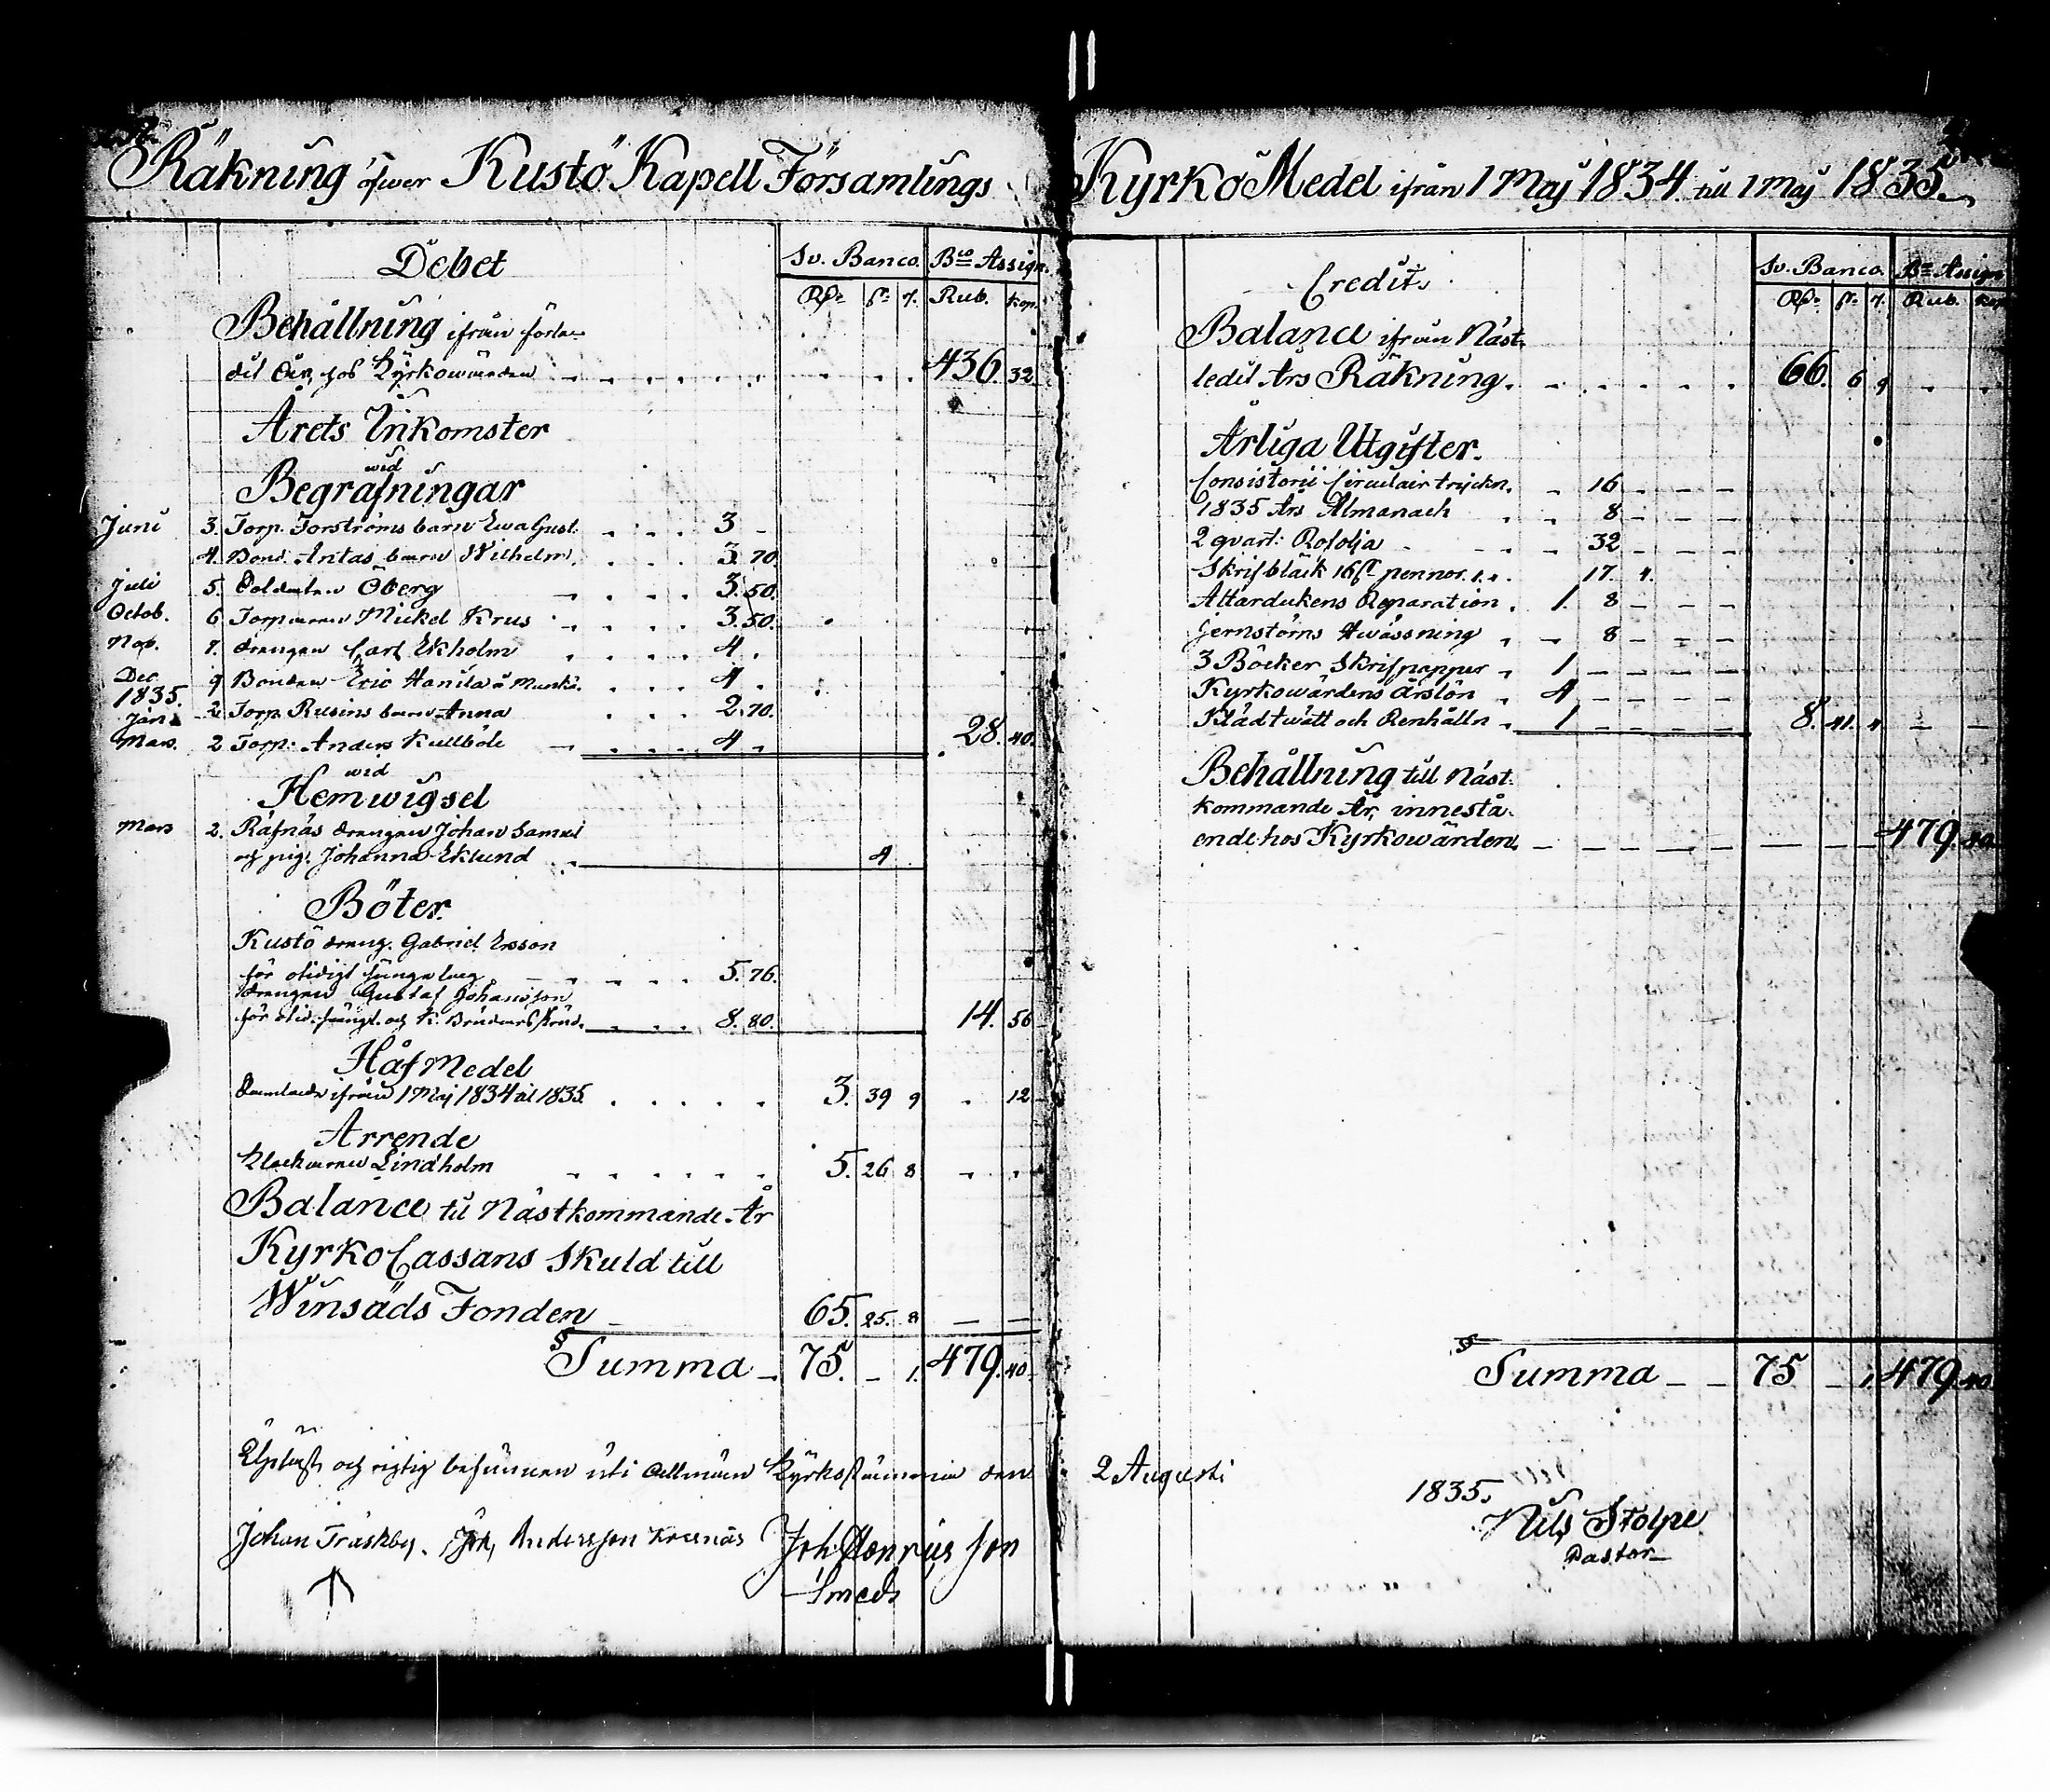 Räkning öfwer Kustö Kapell Församlings
Debet
Sv. Banco. Bco Assign.
Rdr sk. r. Rub. Kop.
Behållning ifrån förle-
det År, hos Kyrkowärden 436. 32
Årets Inkomster
wid
Begrafningar
Juni 3. Torp. Forströms barn Ewa Gust. 3 -
4. Bond. Antas barn Wilhelm. 3. 70.
Juli 5. Soldaten Öberg 3. 50.
Octob. 6 Torparen Mickel Krus 3. 50.
Nov. 7. drengen Carl Ekholm 4.
Dec. 9 Bonden Eric Hanila å Munki. 4.
1835.
Jan. 2 Torp. Rusins barn Anna 2. 70.
Mars. 2 Torp: Anders Kullböle 4 28. 40.
wid
Hemwigsel
Mars 2. Räfnäs drengen Johan Samuel
och pig. Johanna Eklund 4
Böter
Kustö dreng. Gabriel Ersson
för otidigt sänge lag 5. 76.
drengen Gustaf Johansson
för otid. sängl. och K. 8. 80. 14. 56
Håf Medel
Samlade ifrån 1 Maj 1834 til 1835. 3. 39 9 12
Arrende
Klockaren Lindholm 5. 26 8
Balance til Nästkommande År
Kyrko Cassans Skuld till
Winsäds Fonden 65. 25. 8
Summa 75. - 1. 479. 40
Upläst och rigtig befunnen uti allmän Kyrkostämma den
Johan Träskby. Joh. Andersson Krusnäs Joh Henricsson
Smeds
Kyrko Medel ifrån 1 Maj 1834 till 1 Maj 1835.
Credit.
Sv. Banco. Bco Assign
Rdr sk. r. Rub. Kop
Balance ifrån Näst-
ledit Års Räkning. 66. 6 9
Årliga Utgifter.
Consistorii Circulair tryckn. 16
1835 Års Almanach 8
2 qvart: Rofolja 32
Skrifbläck 16 sk. pennor 1.4. 17. 4.
Altardukens Reparation. 1. 8
Jernstörns Hwässning 8
3 Böcker Skrifpapper 1
Kyrkowärdens årslön 4
Klädtwätt och Renhålln. 1 8. 41. 4
Behållning till näst-
kommande År, innestå-
ende hos Kyrkowärden. 479. 40
Summa 75 - 1. 479. 40.
2 Augusti
1835.
Nils Stolpe
Pastor